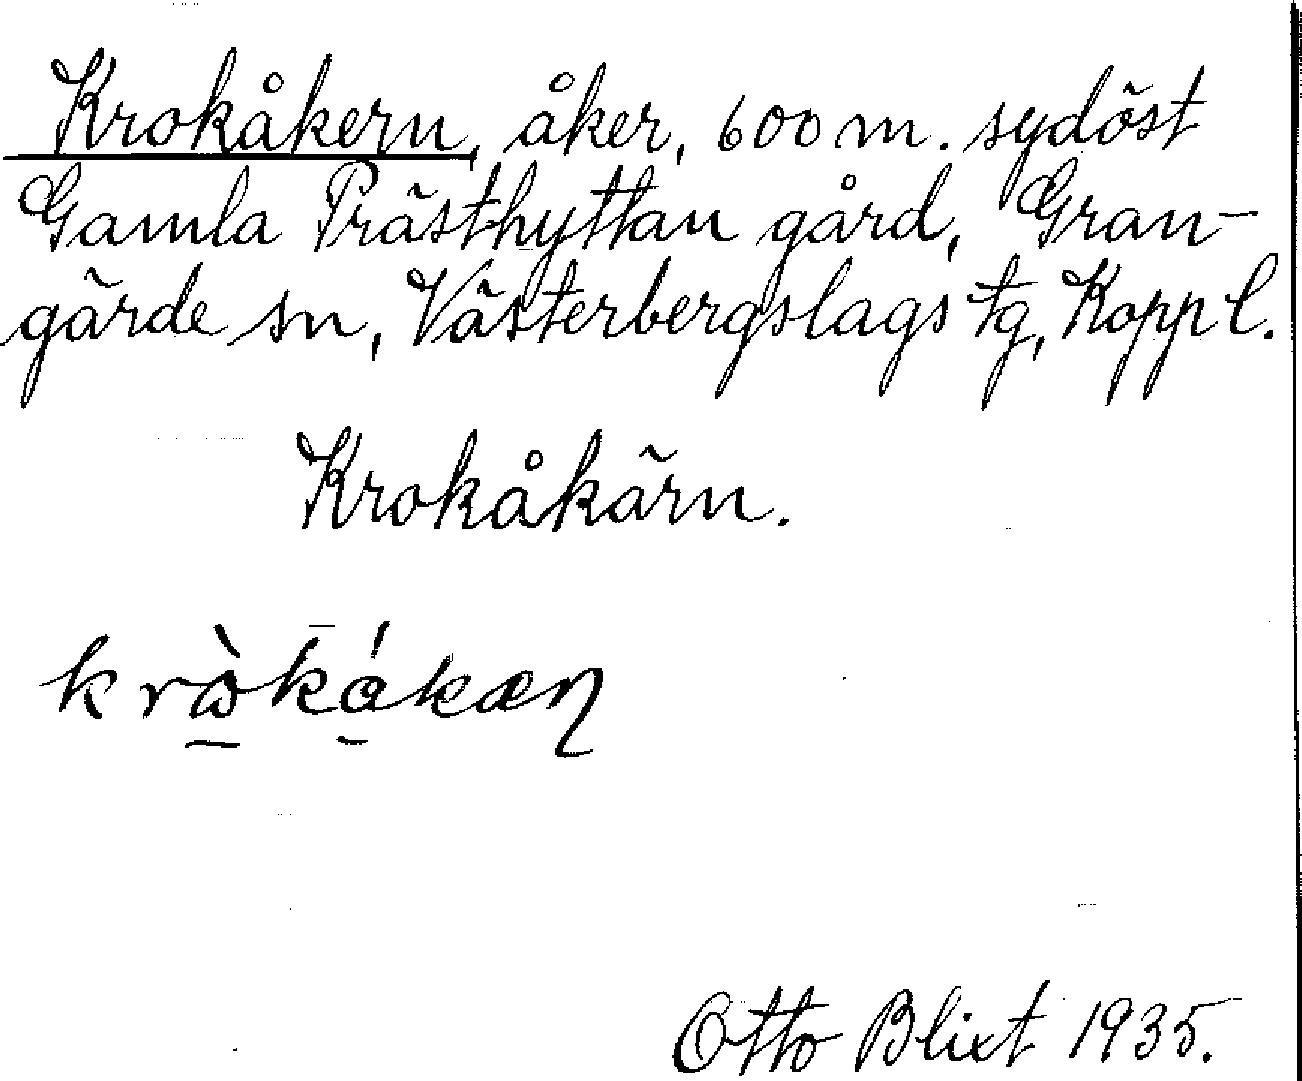 Krokåkern, åker, 600 m. sydöst
Gamla Prästhyttan gård, Gran-
gärde sn, Västerbergslags tg, Kopp l.
Krokåkärn.
Otto Blixt 1935.